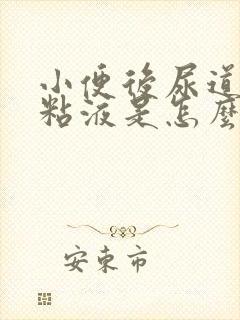 小便後尿道
粘液是怎麼
安東市